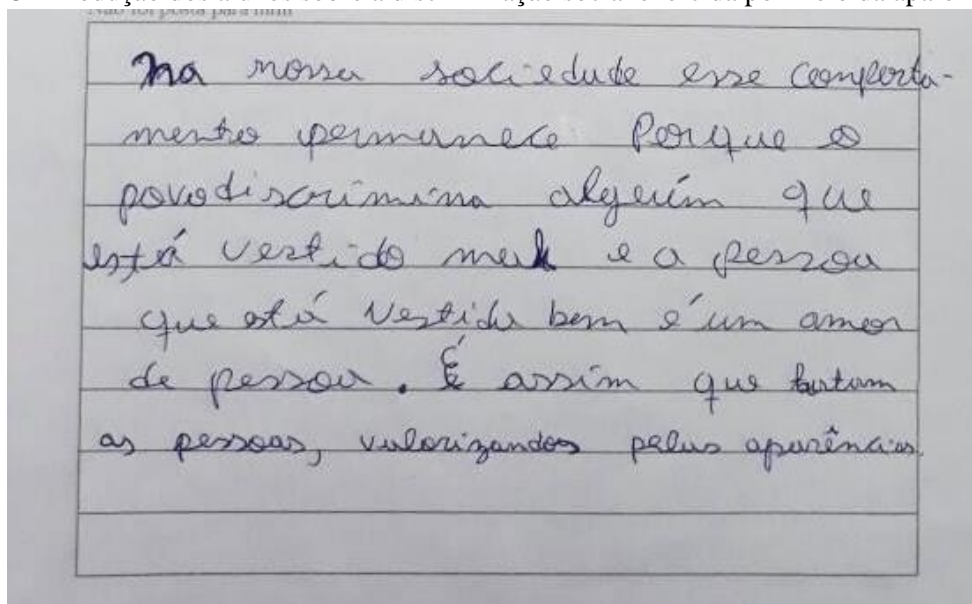 Na nossa sociedade esse comporta-
mento permanece Porque o
povo discrimina alguém que
está vestido mal e a pessoa
que está vestida bem é um amor
de pessoa. É assim que tratam
as pessoas, valorizandos pelas aparências.